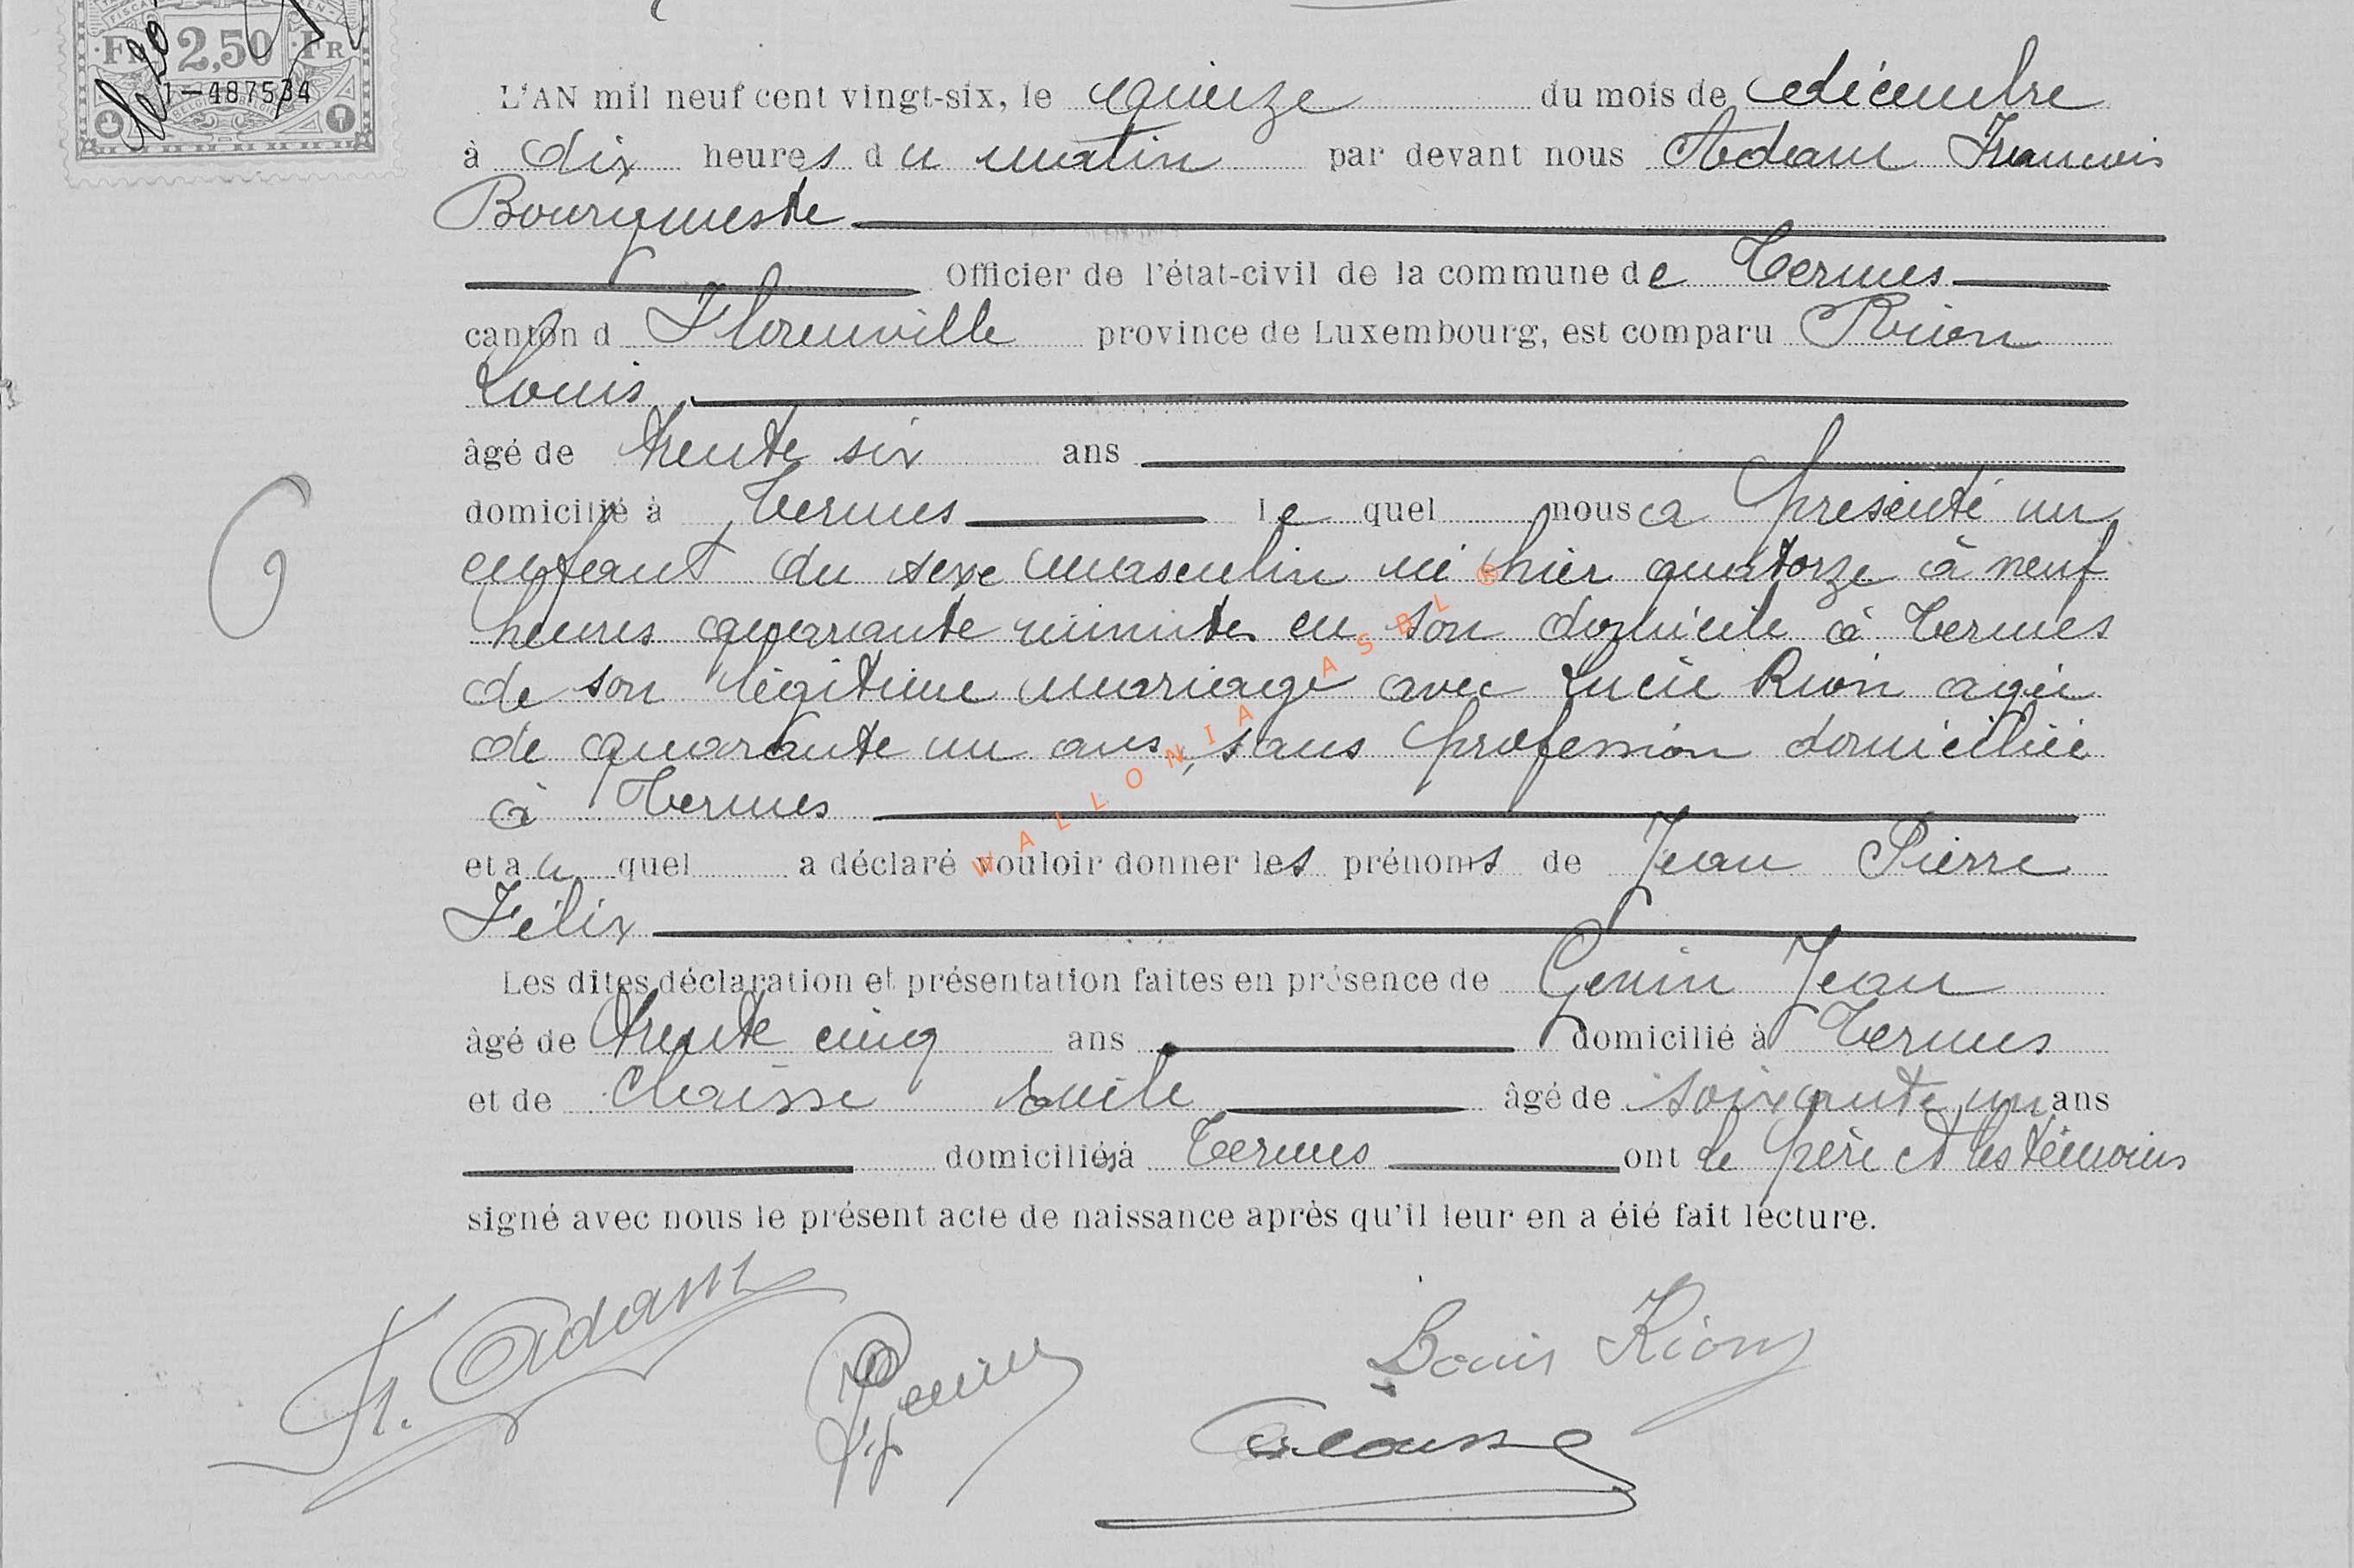 FISCA
FR 2,50 FR
1-487534
L'AN mil neuf cent vingt-six, le quinze du mois de décembre
à dix heures du matin par devant nous Adam Francois
Bourgmestre
Officier de l'état-civil de la commune de Termes
canton d Florenville province de Luxembourg, est comparu Rion
Louis
âgé de trente six ans
domicilié à Termes lequel nous a présenté un
enfant du sexe masculin né hier quatorze à neuf
heures quarante minutes en son domicile à Termes
de son légitime mariage avec Lucie Rion agée
de quarante un ans, sans profession domiciliée
à Termes
et au quel a déclaré vouloir donner les prénoms de Jean Pierre
Félix
Les dites déclaration et présentation faites en présence de Genin Jean
âgé de trente cinq ans domicilié à Termes
et de Claisse Emile âgé de soixante un ans
domiciliés à Termes ont le père et les témoins
signé avec nous le présent acte de naissance après qu'il leur en a été fait lecture.
Fr. Adam
Genin
Louis Rion
WALLONIA ASBL ®